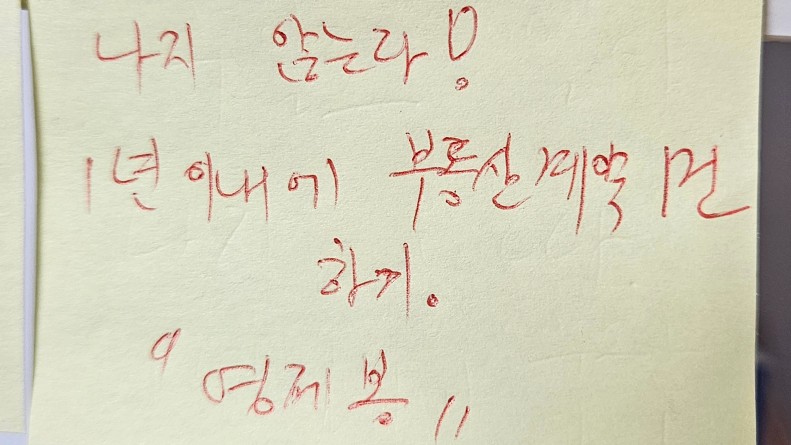 나지 않는다!
1년 이내에 부동산계약 1건
하기.
"영제봉"